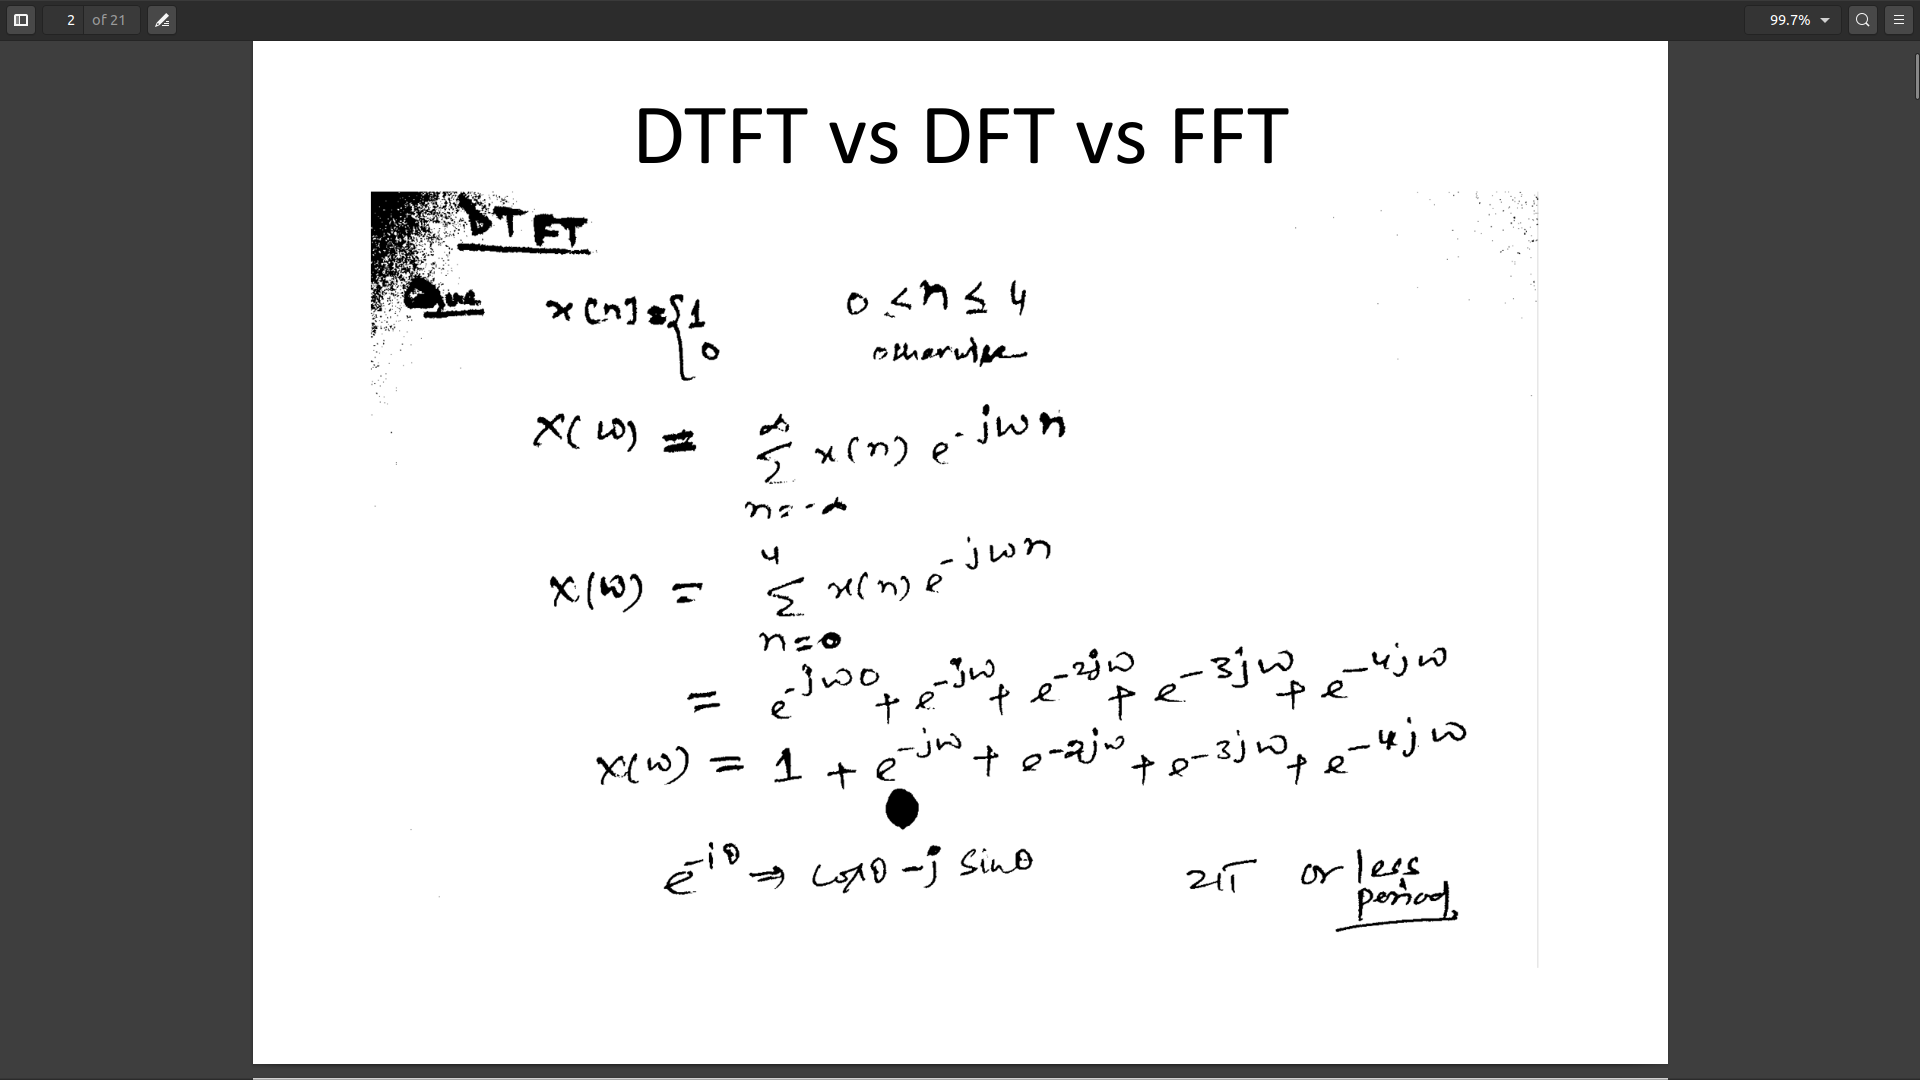 2 of 21 99.7%
DTFT vs DFT vs FFT
DTFT
Que x[n] = { 1 0 < n ≤ 4
0 otherwise
X(ω) = ∞ Σ n=-∞ x(n) e^-jωn
X(ω) = 4 Σ n=0 x(n) e^-jωn
= e^-jω0 + e^-jω + e^-2jω + e^-3jω + e^-4jω
X(ω) = 1 + e^-jω + e^-2jω + e^-3jω + e^-4jω
e^-iθ ⇒ cosθ - j sinθ 2π or less
period,